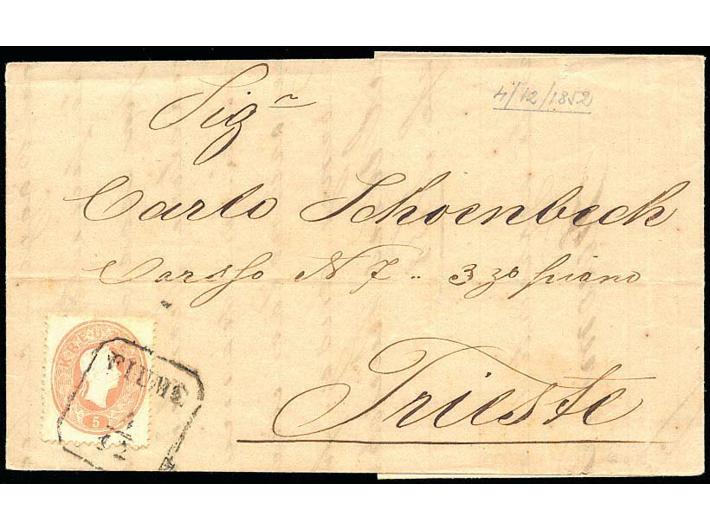 4/12/1852
Sigr
Carlo Schoenbeck
Corsso N 7 .. 3zo piano
Trieste
FIUME
4
12
5